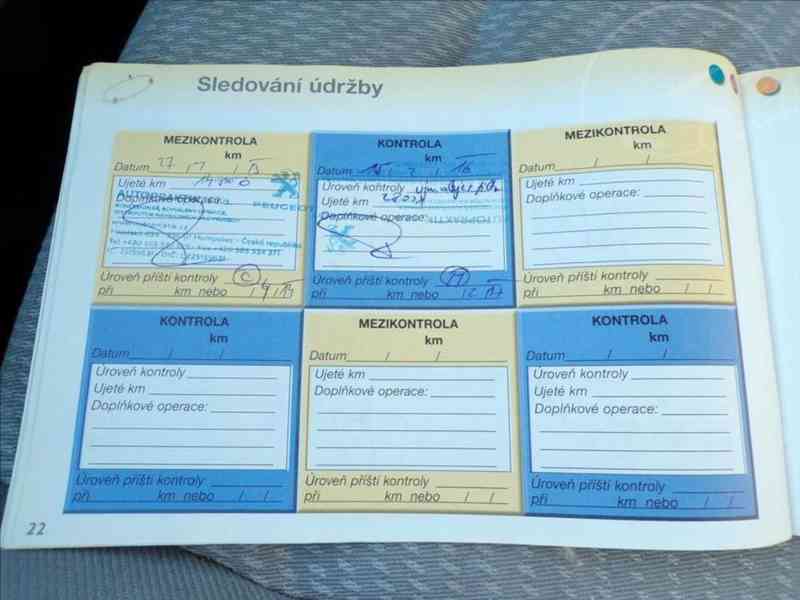 Sledování údržby
MEZIKONTROLA
km
Datum 27 / /
Ujeté km
AUTOPRAKTIK
Doplňkové operace:
PEUGEOT
Humpolec - Česká republika
Úroveň příští kontroly C
při km nebo
KONTROLA
km
Datum 15 / 2 / 16
Úroveň kontroly
Ujeté km
Doplňkové operace:
AUTOPRAKTIK
Úroveň příští kontroly
při km nebo
MEZIKONTROLA
km
Datum / /
Ujeté km
Doplňkové operace:
Úroveň příští kontroly
při km nebo / /
KONTROLA
km
Datum / /
Úroveň kontroly
Ujeté km
Doplňkové operace:
Úroveň příští kontroly
při km nebo / /
MEZIKONTROLA
km
Datum / /
Ujeté km
Doplňkové operace:
Úroveň příští kontroly
při km nebo / /
KONTROLA
km
Datum / /
Úroveň kontroly
Ujeté km
Doplňkové operace:
Úroveň příští kontroly
při km nebo / /
22